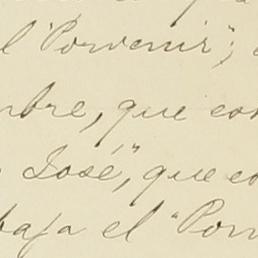 el "Porvenir";
mbre, que con
José", que co
baja el "Porv